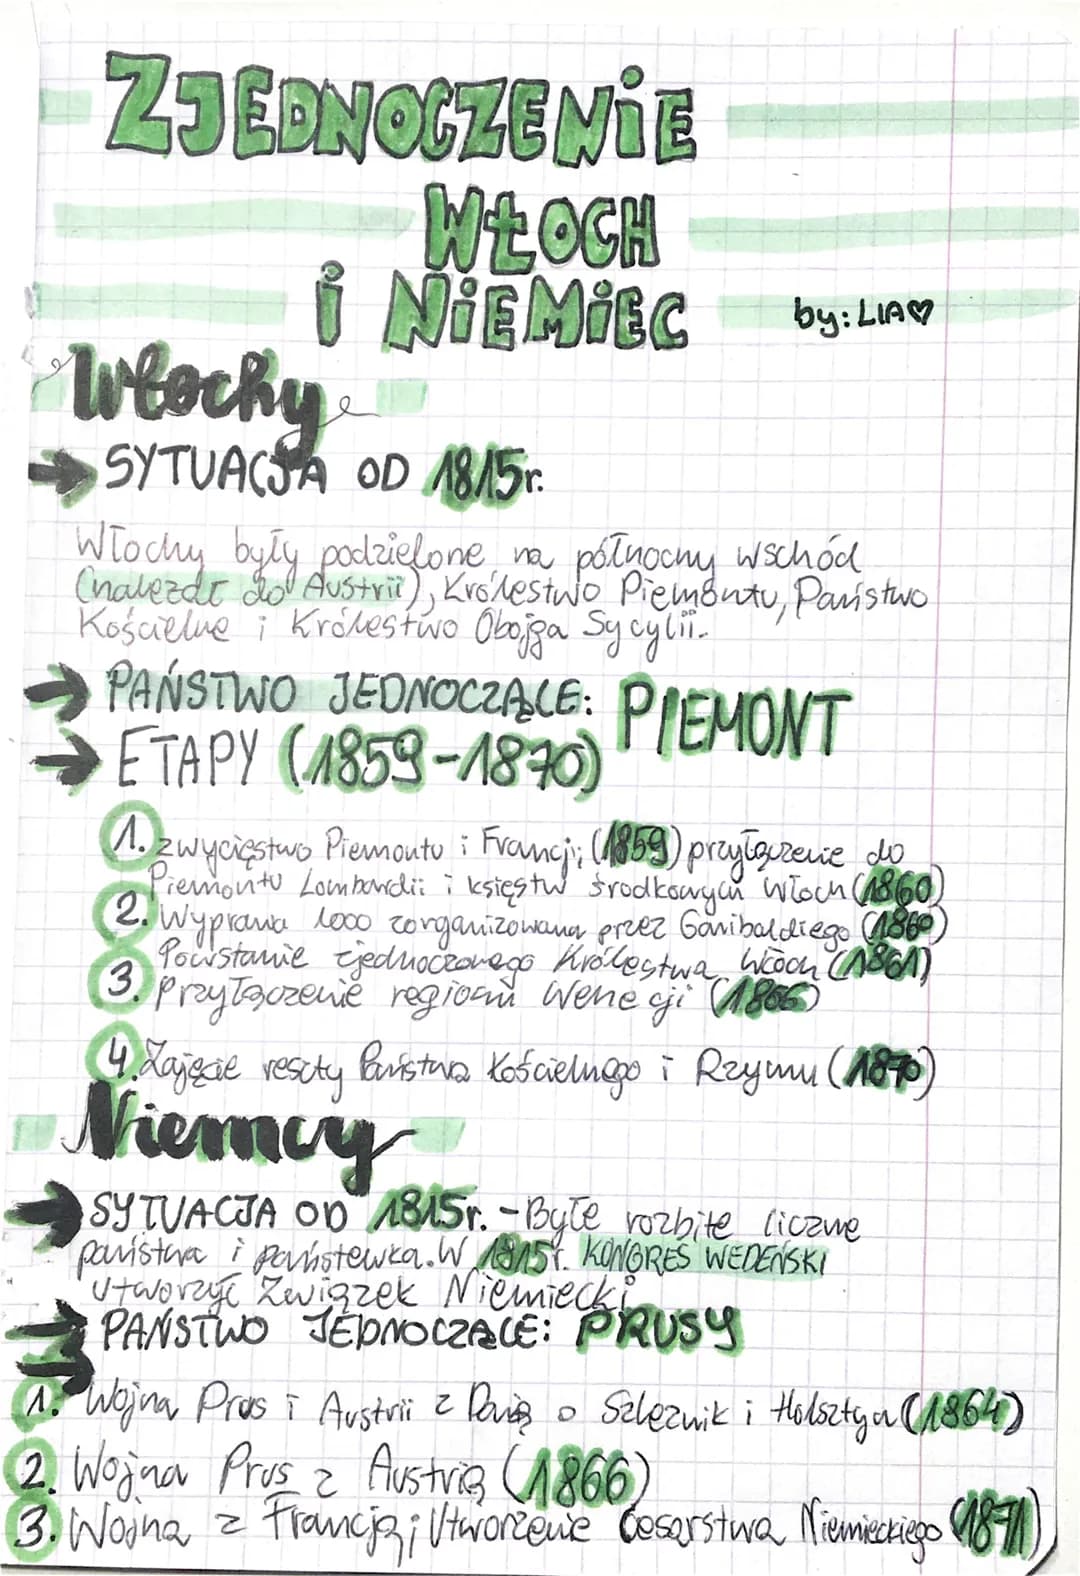 ZJEDNOCZENiE
WŁOCH
i NiEMiEC
by: LIA♡
Włochy
→ SYTUACJA OD 1815r.
Włochy były podzielone na północny wschód
(należał do Austrii), Królestwo Piemontu, Państwo
Kościelne i Królestwo Obojga Sycylii.
→ PAŃSTWO JEDNOCZĄCE: PIEMONT
→ ETAPY (1859-1870)
1. zwycięstwo Piemontu i Francji; (1859) przyłączenie do
Piemontu Lombardii i księstw środkowych Włoch (1860)
2. Wyprawa 1000 zorganizowana przez Garibaldiego (1860)
Powstanie zjednoczonego Królestwa Włoch (1861)
3. Przyłączenie regionu Wenecji (1866)
4. Zajęcie reszty Państwa Kościelnego i Rzymu (1870)
Niemcy
→ SYTUACJA OD 1815r. - Byłe rozbite liczne
państwa i państewka. W 1815r. KONGRES WEDEŃSKI
utworzył Związek Niemiecki
→ PAŃSTWO JEDNOCZĄCE: PRUSY
→
1. Wojna Prus i Austrii z Danią o Szlezwik i Holsztyn (1864)
2. Wojna Prus z Austrią (1866)
3. Wojna z Francją; Utworzenie Cesarstwa Niemieckiego (1871)